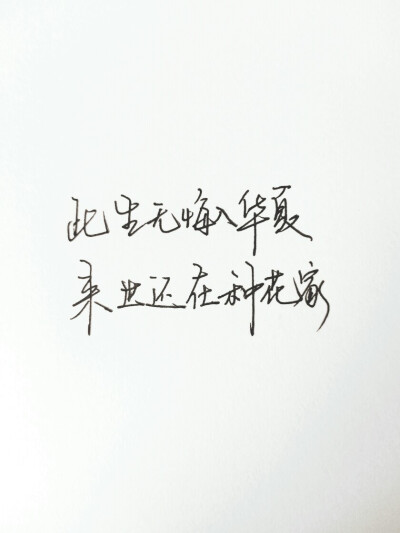 此生无悔入华夏
来世还在种花家